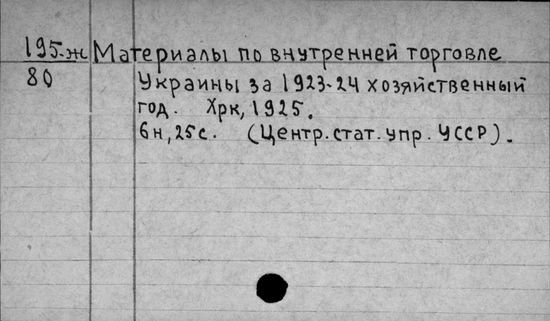 195-ж Материалы по внутренней торговле
80 Украины за 1923-24 хозяйственный
год. Хрк, 1925.
6н, 25с. (Центр. стат. упр. УССР).